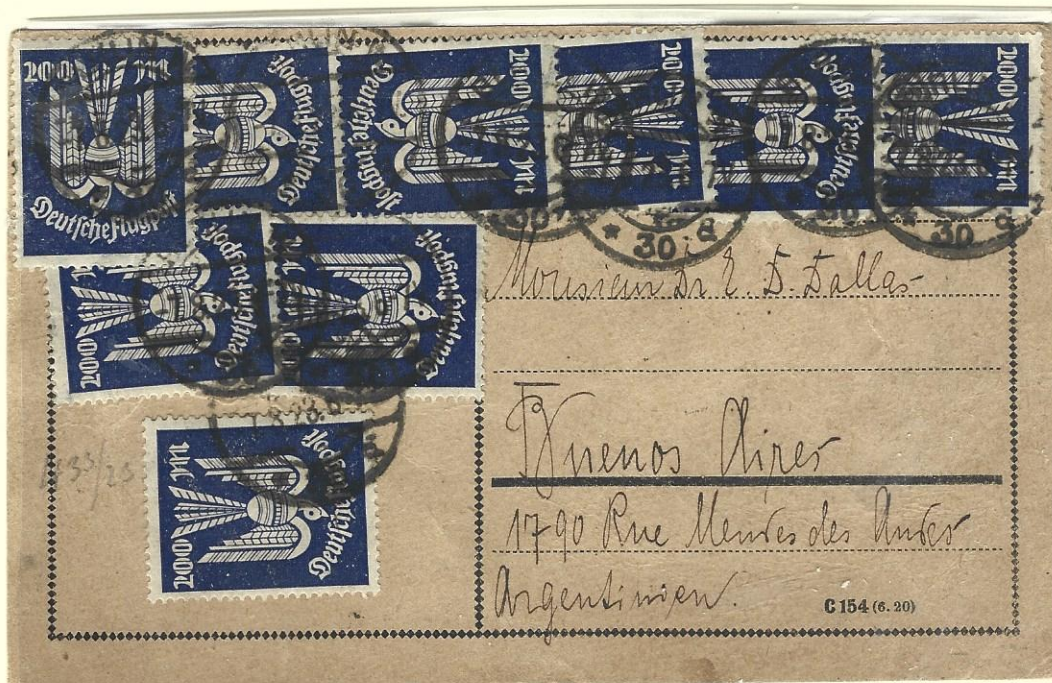 200 M
Deutsche Flugpost
Deutsche Flugpost
Deutsche Flugpost
200 M
200 M
Deutsche Flugpost
200 M
200 M
Deutsche Flugpost
Deutsche Flugpost
200 M
Deutsche Flugpost
* 30 a
30 a
7.8.23.
Monsieur Dr E. D. Dallas
Buenos Aires
1790 Rue
des Andes
Argentinien.
C 154 (6. 20)